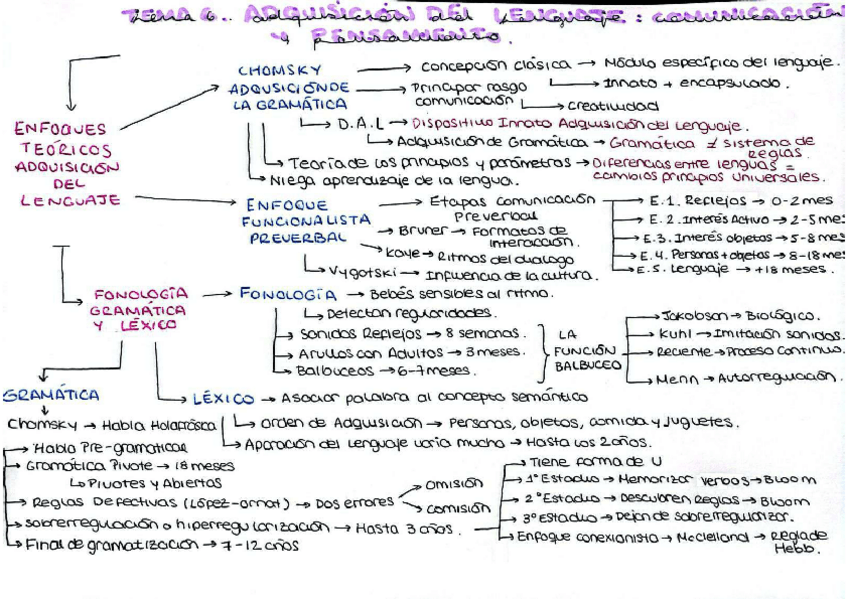 TEMA 6.. ADQUISICIÓN DEL LENGUAJE: COMUNICACIÓN
Y PENSAMIENTO.
ENFOQUES
TEÓRICOS
ADQUISICIÓN
DEL
LENGUAJE
CHOMSKY
ADQUSICIÓN DE
LA GRAMÁTICA
→ Concepción clásica → Módulo específico del lenguaje.
→ Principar rasgo
comunicación
→ Innato + encapsulado.
→ creatividad
→ D.A.L → Dispositivo Innato Adquisición del Lenguaje.
→ Adquisición de Gramática → Gramática ≠ sistema de
reglas.
→ Teoría de los principios y parámetros → Diferencias entre lenguas =
cambios principios universales.
→ Niega aprendizaje de la lengua.
ENFOQUE
FUNCIONALISTA
PREVERBAL
→ Etapas comunicación
Preverbal
→ E.1. Reflejos → 0-2 mes
→ E.2. Interés Activo → 2-5 mes
→ E.3. Interés objetos → 5-8 mes
→ E.4. Personas + objetos → 8-18 mes
→ E.5. Lenguaje → +18 meses.
→ Bruner → Formatos de
interacción.
→ Kaye → Ritmos del dialogo
→ Vygotski → Influencia de la cultura.
FONOLOGÍA
GRAMÁTICA
Y LÉXICO
→ FONOLOGÍA → Bebés sensibles al ritmo.
→ Detectan regularidades.
→ Sonidos Reflejos → 8 semanas.
→ Arullos con Adultos → 3 meses.
→ Balbuceos → 6-7 meses.
LA
FUNCIÓN
BALBUCEO
→ Jakobson → Biológico.
→ Kuhl → Imitación sonidos.
→ Reciente → Proceso continuo.
→ Menn → Autorregulación.
GRAMÁTICA
→ LÉXICO → Asociar palabra al concepto semántico
→ Orden de Adquisición → Personas, objetos, comida y juguetes.
→ Aparación del lenguaje varía mucho → Hasta los 2 años.
Chomsky → Habla Holofrásica
→ Habla Pre-gramatical
→ Gramática Pivote → 18 meses
→ Pivotes y Abiertas
→ Reglas Defectivas (López-ornat) → Dos errores
omisión
comisión
→ sobrerregulación o hiperregularización → Hasta 3 años.
→ Tiene forma de U
→ 1º Estadio → Memorizar verbos → Bloom
→ 2º Estadio → Descubren Reglas → Bloom
→ 3º Estadio → Dejan de sobrerregularizar.
→ Enfoque conexionista → McClelland → Regla de
Hebb.
→ Final de gramatización → 7-12 años